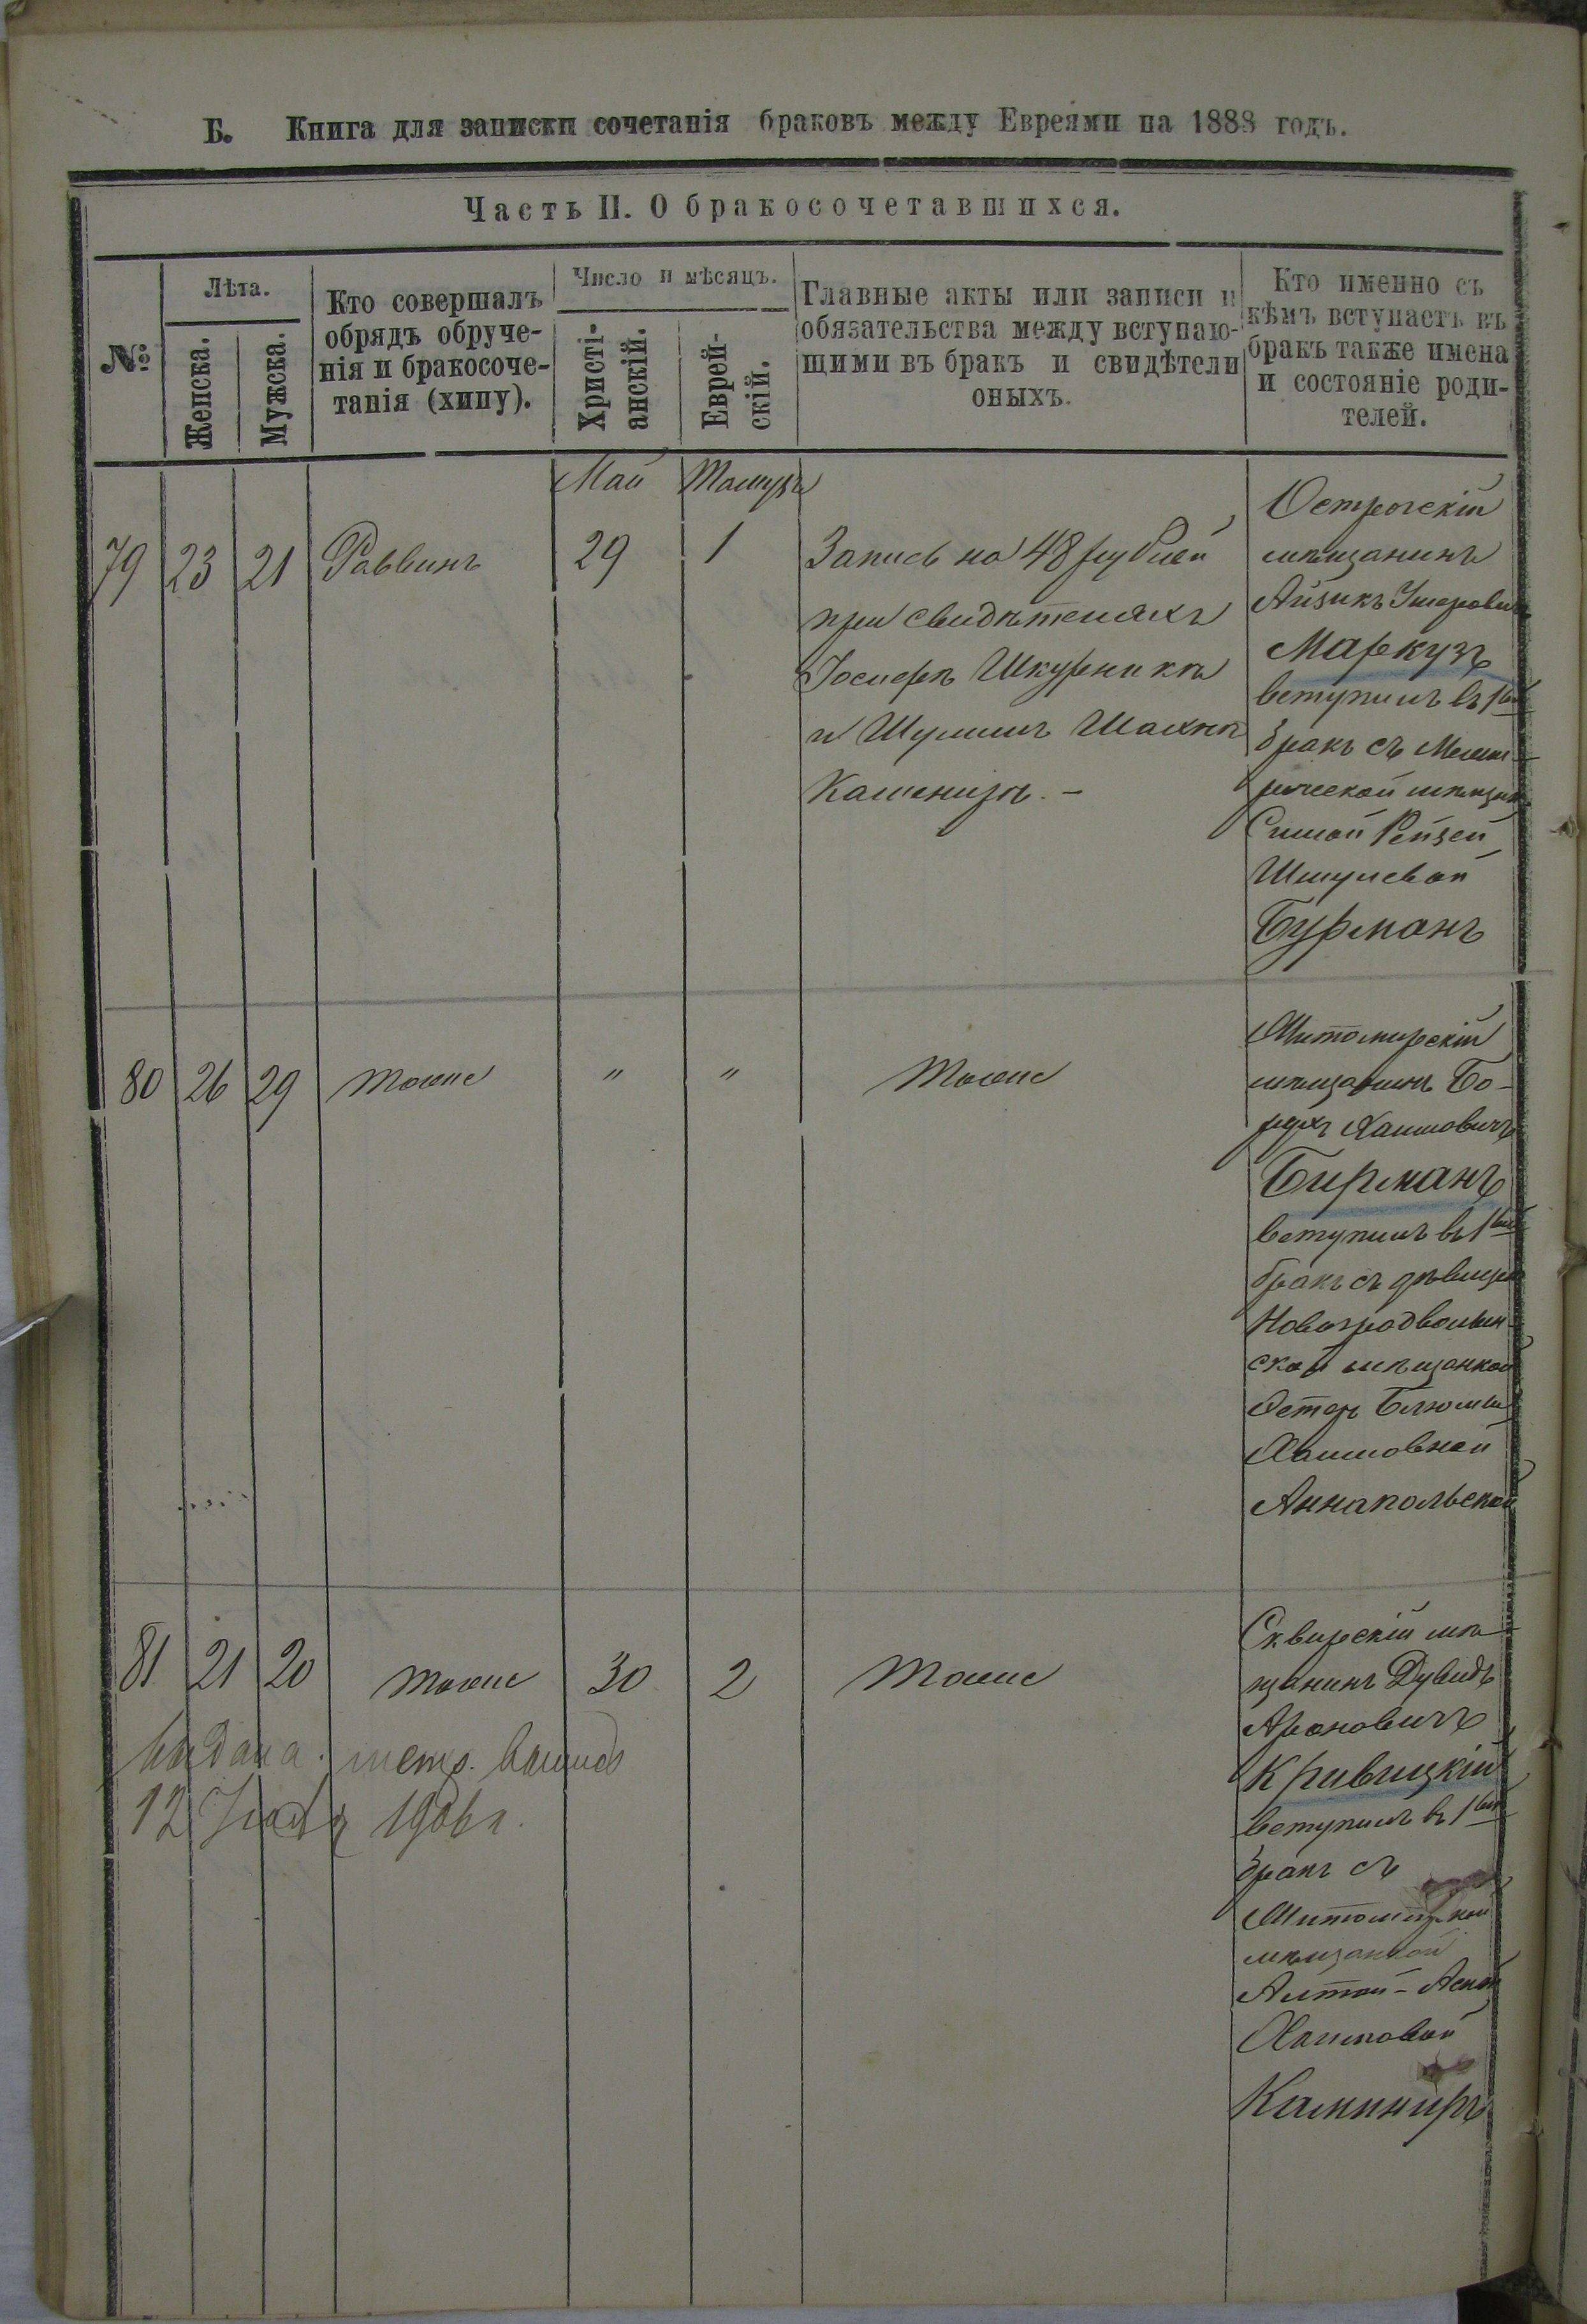 Б. Книга для записки сочетанія браковъ между Евреями на 1888 годъ.
Часть II. О бракосочетавшихся.
№
Лѣта.
Женска.
Мужска.
Кто совершалъ
обрядъ обруче-
нія и бракосоче-
танія (хипу).
Число и мѣсяцъ.
Христі-
анскій.
Еврей-
скій.
Главные акты или записи и
обязательства между вступаю-
щими въ бракъ и свидѣтели
оныхъ.
Кто именно съ
кѣмъ вступаетъ въ
бракъ также имена
и состояніе роди-
телей.
Май Тамузъ
79 23 21 Раввинъ 29 1
Запись на 48 рублей
при свидѣтеляхъ
Іосифѣ Шкурника
и Шулимъ Шахнѣ
Острогскій
мѣщанинъ
Айзикъ Ушеровичъ
Маркузъ
вступилъ въ 1вый
бракъ съ
Симой Рейзей
Шмулевой
Бурманъ
80 26 29 тоже " " Тоже
Житомирскій
мѣщанинъ Бо-
рухъ Хаимовичъ
Бирманъ
вступилъ въ 1вый
бракъ съ дѣвицею
Новоградволын-
ской мѣщанкой
Эстеръ Блюмы
Хаимовной
Аннапольской
81 21 20 тоже 30 2 Тоже
Сквирскій мѣ-
щанинъ Дувидъ
Ароновичъ
Кривицкій
вступилъ въ 1вый
бракъ съ
Житомирской
мѣщанкой
Хаимовой
Каминиръ
выдана метр. выпись
12 1906 г.